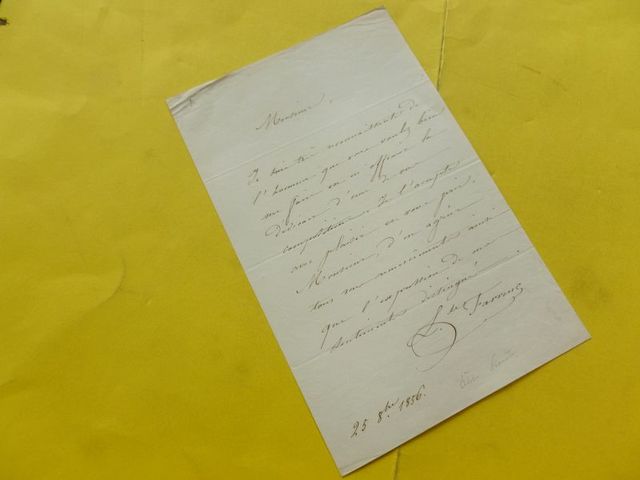 Monsieur,
Je suis très reconnaissante de
l'honneur que vous voulez bien
me faire en m'offrant la
dédicace d'une de vos
compositions. Je l'accepte
avec plaisir et vous prie,
Monsieur, d'en agréer
tous mes remerciements ainsi
que l'expression de mes
sentiments distingués
L. de
25 8bre 1856.